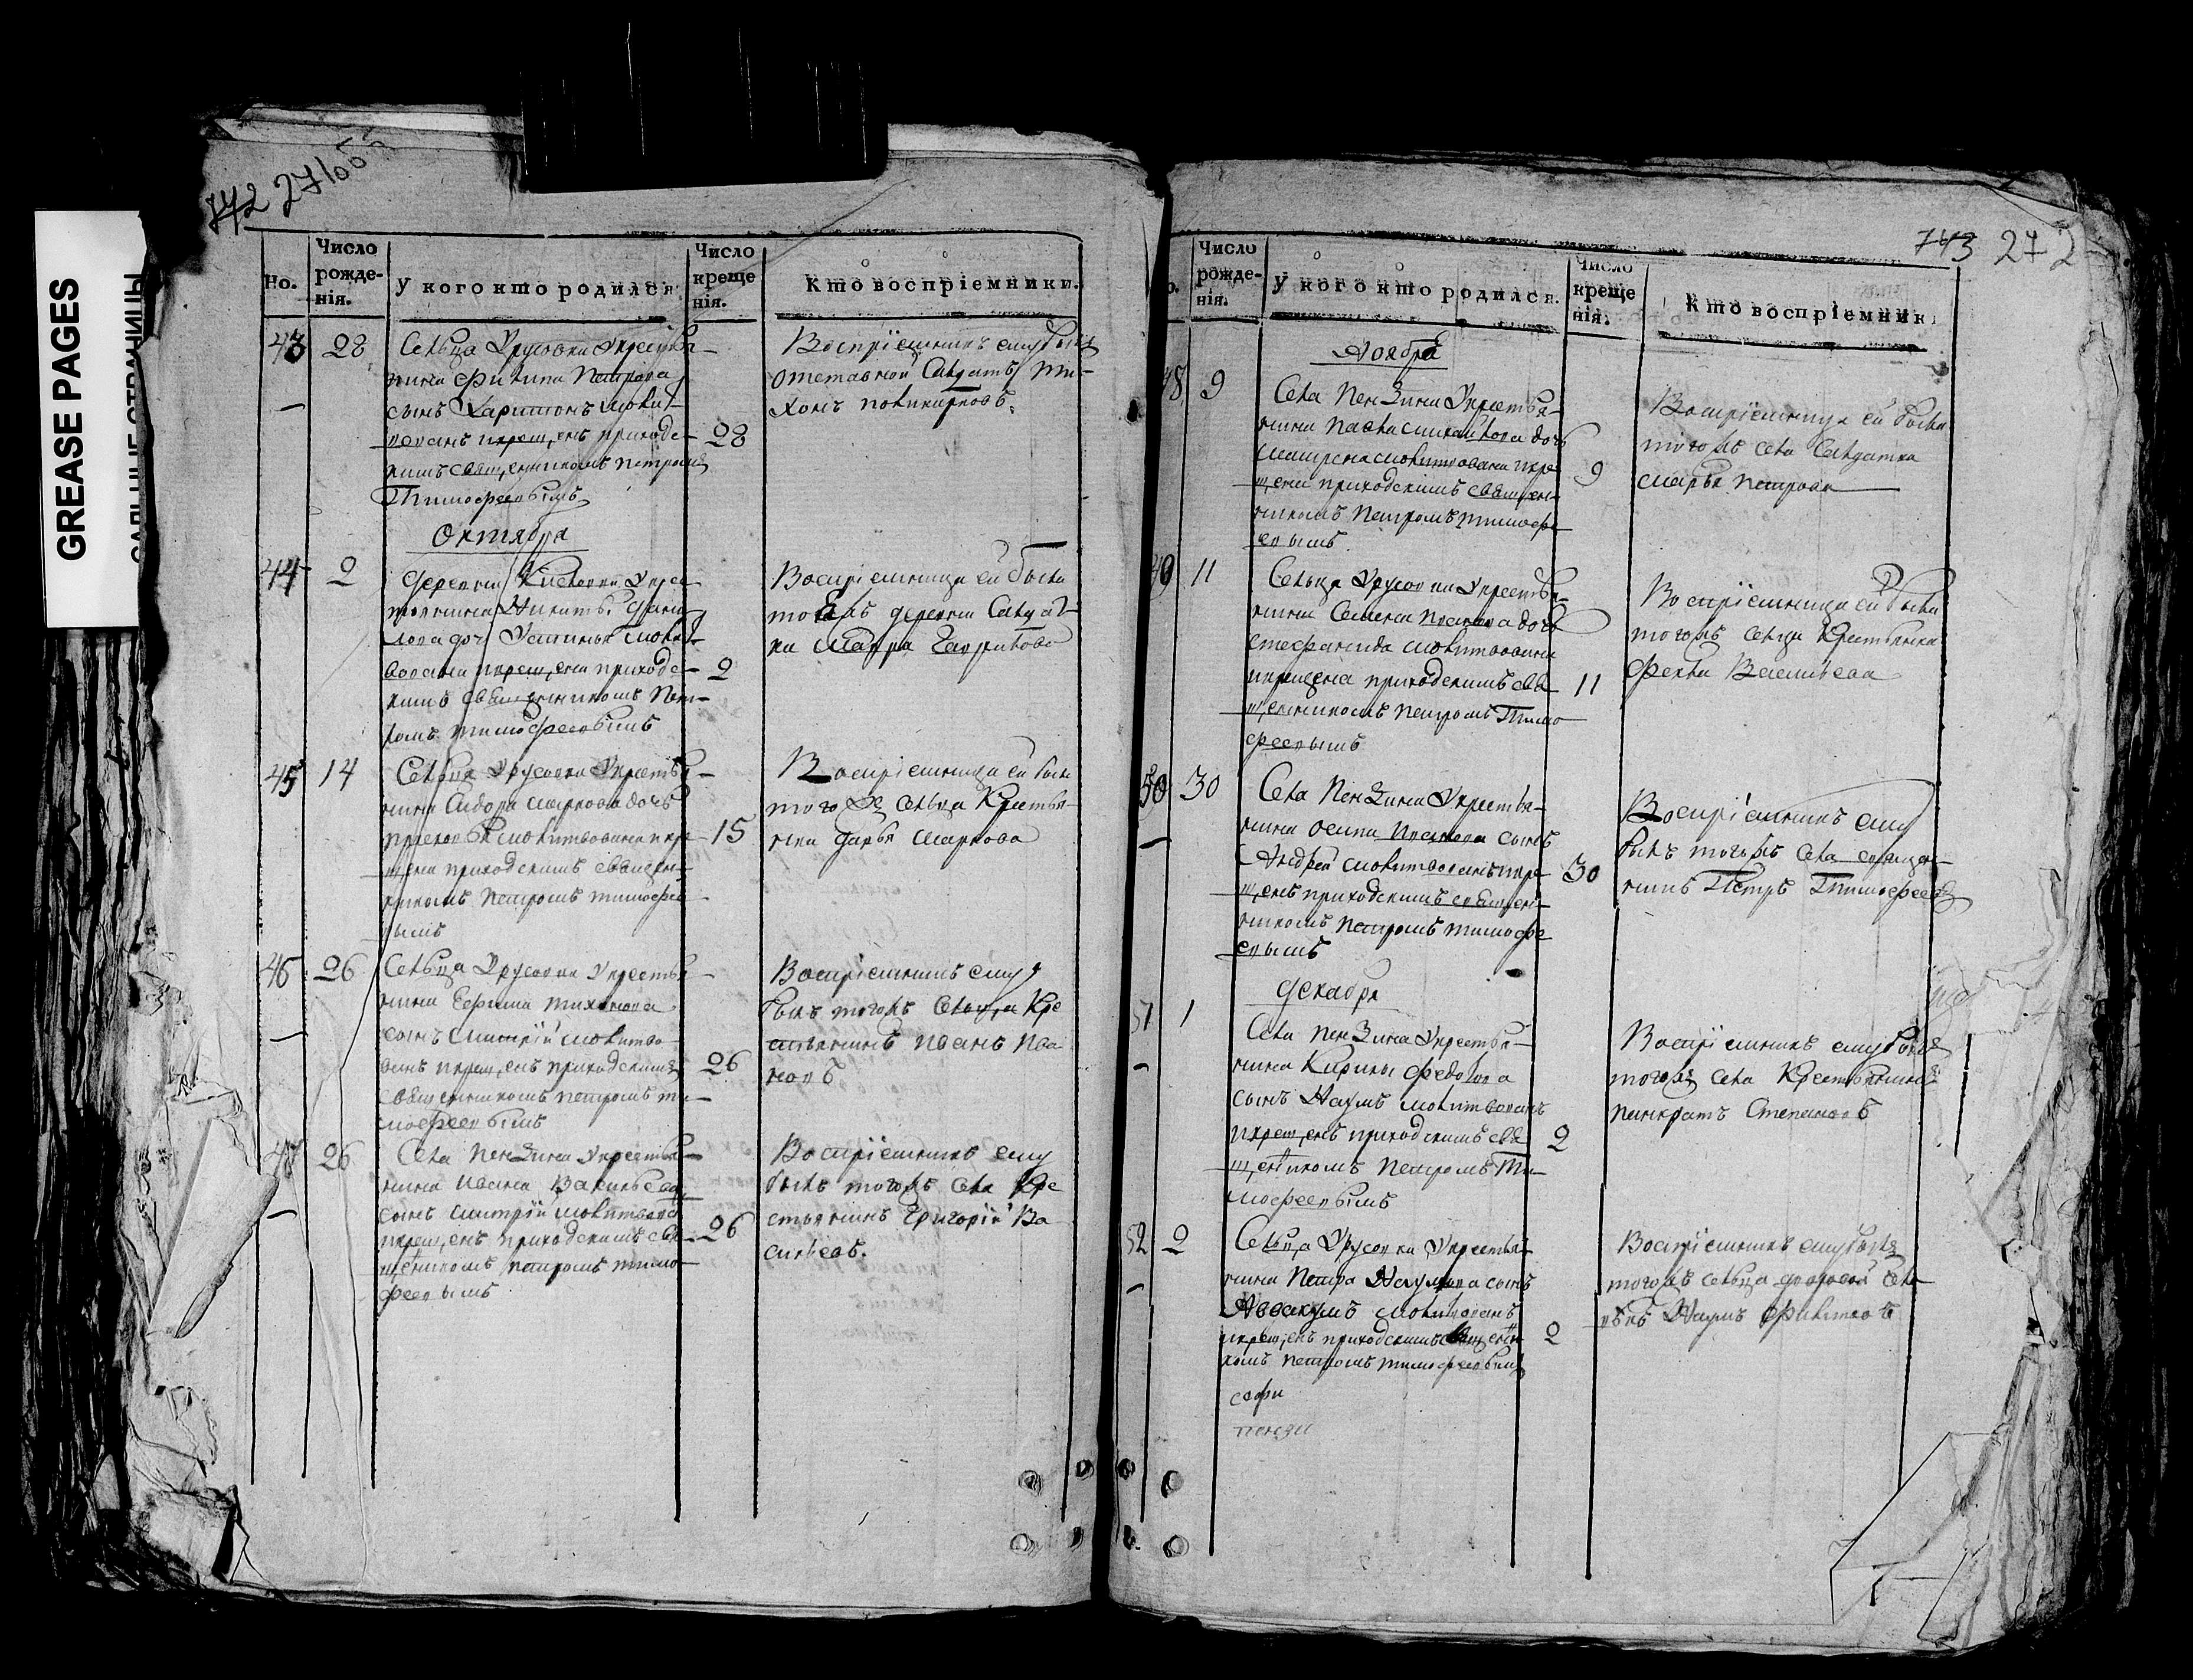 GREASE PAGES
САЛЬНЫЕ СТРАНИЦЫ
742 271
Но.
Число рожденія.
У кого кто родился.
Число крещенія.
Кто воспріемники.
43 28 Сельца Урусовки Укрестья-
нина Филипа Петрова
сынъ Харитонъ моли-
тованъ икрещенъ приход- 28
кимъ священникомъ петромъ
Тимофеевымъ
Воспріемникъ ему былъ
отставной Салдатъ Ти-
хонъ поликарповъ.
Октября
44 2 Деревни Укрес-
тьянина Никиты Дани
лова дочь Устинья моли-
вована икрещена приходс- 2
кимъ священникомъ Пет-
ромъ тимофеевымъ
Воспріемница ей была
тоя жъ деревни Салдат
ка Мавра Гаврилова
45 14 Сельца Урусовки Укрестья-
нина Сидора маркова дочь
молитвована икре- 15
щена приходскимъ священ-
никомъ Петромъ тимофее
вымъ
Воспріемница ей была
того жъ сельца Крестья-
нка дарья Маркова
46 26 Сельца Урусовки Укрестья-
нина Ефима тихонова
сынъ Дмитрій молитво-
ванъ икрещенъ приходскимъ 26
священникомъ петромъ ти-
мофеевымъ
Воспріемникъ ему
былъ тогожъ Сельца Кре
стьянинъ иванъ Ива
новъ
47 26 Села Пензина Укрестья-
нина ивана Васильева
сынъ дмитрій молитвованъ
икрещенъ приходскимъ свя- 26
щенникомъ петромъ тимо-
феевымъ
Воспріемникъ ему
былъ тогожъ Села Кре
стьянинъ Григорій Ва
сильевъ.
743 272
Число рожденія.
У кого кто родился.
Число крещенія.
Кто воспріемник
Ноября
48 9 Села Пензина Укрестья-
нина Павла михайлова дочь
молитвована икре 9
щена приходскимъ священ-
никомъ Петромъ тимофе
евымъ
Воспріемница ей была
тогожъ села Салдатка
марья петрова
49 11 Сельца Урусовки Укрестья-
нина Семена иванова дочь
стефанида молитвована
икрещена приходскимъ свя- 11
щенникомъ петромъ Тимо
феевымъ
Воспріемница ей была
тогожъ сельца Крестьянка
Фекла Васильева
50 30 Села Пензина Укрестья-
нина осипа иванова сынъ
Андрей молитвованъ икре- 30
щенъ приходскимъ священ-
никомъ петромъ тимофе
евымъ
Воспріемникъ ему
былъ тогожъ села священ-
никъ Петръ Тимофеевъ
Декабря
51 1 Села Пензина Укрестья-
нина Кирилы Федорова
сынъ Наумъ молитвованъ
икрещенъ приходскимъ свя 2
щенникомъ петромъ Ти-
мофеевымъ
Воспріемникъ ему былъ
тогожъ села Крестьянинъ
панкратъ Степановъ
52 2 Сельца Урусовки Укрестья-
нина Петра Наумова сынъ
Аввакумъ молитвованъ
икрещенъ приходскимъ священни 2
комъ петромъ тимофеевымъ
софи
пензи
Воспріемникъ ему былъ
тогожъ сельца дворовой чело
векъ Наумъ Филиповъ